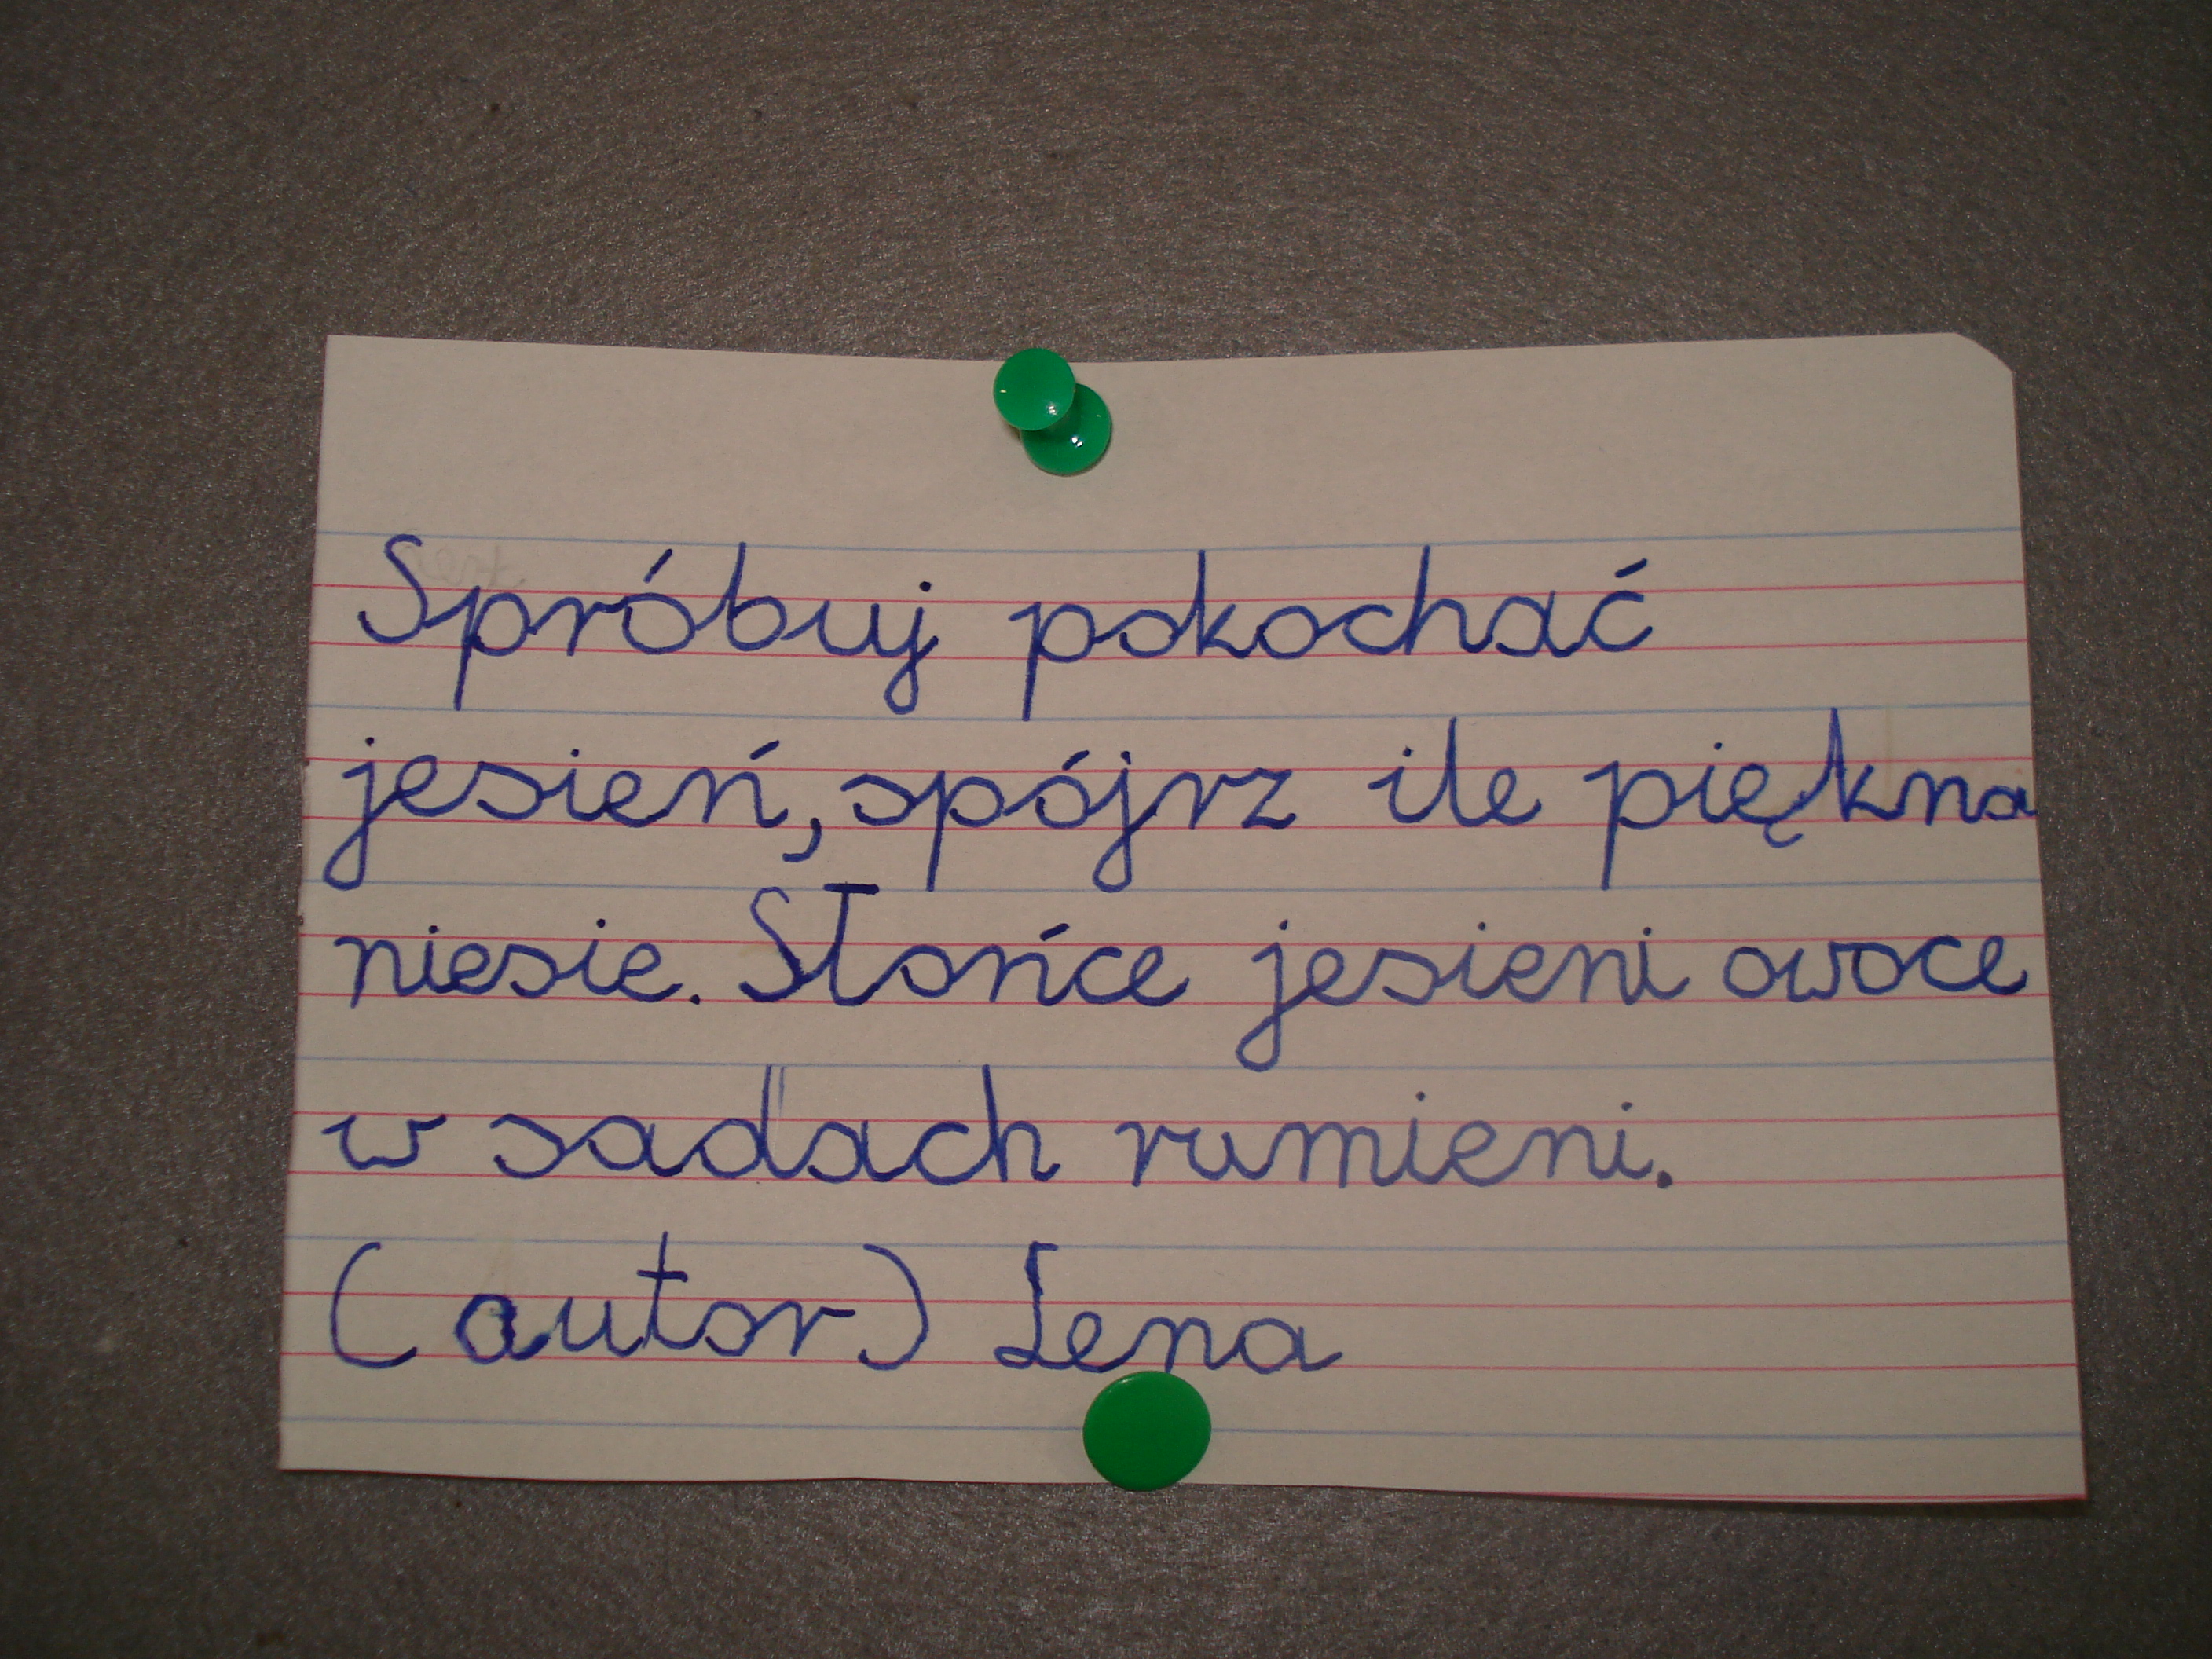 Spróbuj pokochać
jesień, spójrz ile piękna
niesie. Słońce jesieni owoce
w sadach rumieni.
(autor) Lena